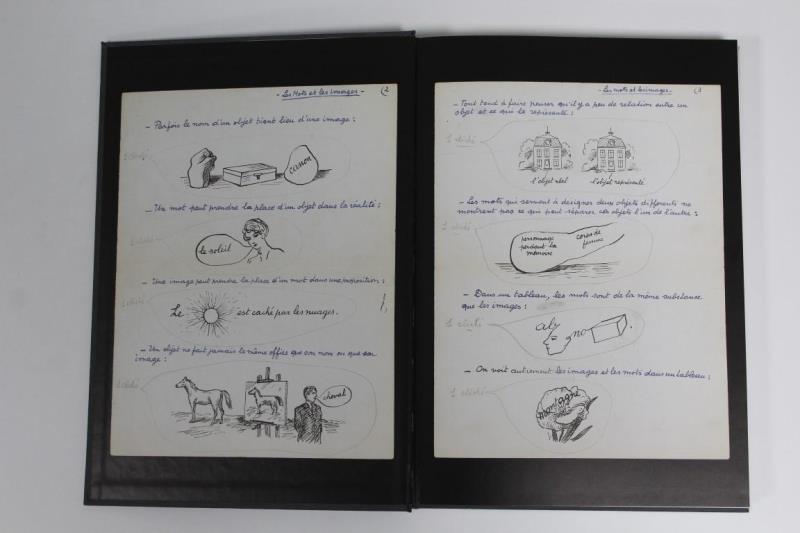 - Les Mots et les Images -
(2
- Parfois le nom d'un objet tient lieu d'une image :
1 cliché
canon
- Un mot peut prendre la place d'un objet dans la réalité :
1 cliché
le soleil
- Une image peut prendre la place d'un mot dans une proposition :
1 cliché
Le est caché par les nuages.
- Un objet ne fait jamais le même office que son nom ou que son
image :
1 cliché
cheval
- Les mots et les images -
(3
- Tout tend à faire penser qu'il y a peu de relation entre un
objet et ce qui le représente :
1 cliché
l'objet réel
l'objet représenté
- Les mots qui servent à désigner deux objets différents ne
montrent pas ce qui peut séparer ces objets l'un de l'autre :
1 cliché
personnage
perdant la
mémoire
corps de
femme
- Dans un tableau, les mots sont de la même substance
que les images :
1 cliché
no
- On voit autrement les images et les mots dans un tableau :
1 cliché
montagne